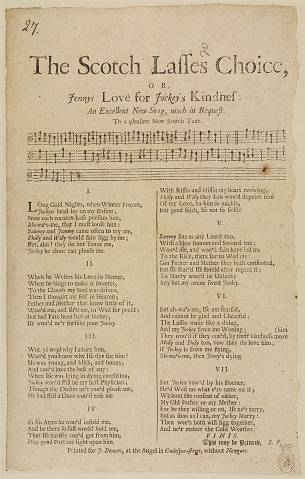 27.
The Scotch Lasses Choice,
OR,
Jennys Love for Jockey's Kindness:
An Excellent New Song, much in Request.
To a pleasant New Scotch Tune.
I.
LOng Cold Nights, when Winter Frozen,
Jockey's head lay on my Bosom;
Now each wanton Lass
Ah-wa's-me, that I must loose him:
Sawny and Jemmy came often to try me,
Philly and Willy would fain ligg by me;
But, alas! they do but Teaze me,
Jockey he alone can please me.
II.
When he Writes his Love in Meeter,
When he Sings to make it sweeter,
To the Clouds my Soul was driven,
Then I thought my self in Heaven;
Father and Mother that knew little of it,
Woo'd me, and sed me, to Wed for profit;
but had Fate been but or Jockey,
Ise wou'd ne'r forsake poor Jockey.
III.
Wae is me! why should I adorn him,
Wou'd you know why Ise dye for him?
He was young, and blith, and bonny,
And cou'd love the best of any:
When Ise was lying in dying condition,
Jockey wou'd still be my best Physician;
Though the Doctor ne'r cou'd please me,
He had still a Dose wou'd ease me.
IV.
In his Arms he wou'd infold me,
And he there so fast would hold me,
That Ise hardly cou'd get from him,
May good Fortune light upon him
With Kisses and blisses my heart reviving,
Philly and Willy they fain wou'd deprive him
Of my Love, to him so tuckle
But good faith, Ise not so fickle
V.
Sawny fine as any Laird too,
With a blew Bonnet and Sword too;
Woo'd me, and wou'd fain have led me
To the Kirk, there for to Wed me:
Gan Father and Mother they both consented,
But Ise fear'd Ise should after repent it;
To Marry wou'd be Unlucky
Any but my neane sweet Jockey.
VI.
But ah-wa's-me, Ise am forsaken,
And cannot be glad and Chearful
The Lasses make sike a doing,
And my Jockey from me Wooing;
They wou'd if they cou'd, by their kindness move
Molly and Dolly too, now they do love him;
If Jockey is from me flying,
Ah-wa's-me, then Jenny's dying.
VII.
But Jockey now'd by his Booher,
He'd Wed on what e're came on it;
Without the consent of either,
My Old Father or my Mother:
For be they willing or no, Ise ne'r tarry,
But as soon as I can, my Jockey Marry:
Then wee's both will ligg together,
And ne'r matter the Cold Weather.
FINIS.
This may be Printed, R. P.
Printed for J. Deacon, at the Angel in Guiltspur-street, without Newgate.